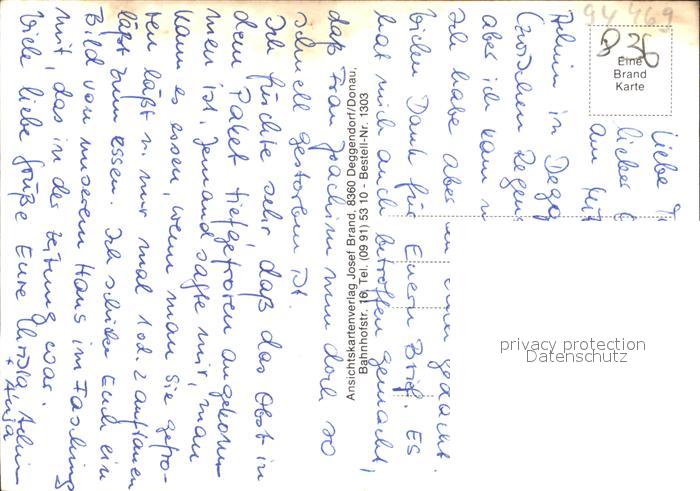 Liebe
liebes
am
Achim in Degg
(zwischen Regens
aber ich kann
Ich habe aber an gedacht.
Vielen Dank für Euern Brief. Es
hat mich auch betroffen gemacht,
daß Frau Joachim nun doch so
schnell gestorben ist.
Ich fürchte sehr, daß das Obst in
dem Paket tiefgefroren angekom-
men ist. Jemand sagte mir, man
kann es essen, wenn man sie gefro-
ren läßt u. nur mal 1 od. 2 auftauen
läßt zum essen. Ich schicke Euch ein
Bild von unserem Haus im Fasching
mit, das in der Zeitung war.
Viele liebe Grüße Eure Achim
+ Anja
Ansichtskartenverlag Josef Brand, 8360 Deggendorf/Donau,
Bahnhofstr. 16, Tel. (09 91) 53 10 - Bestell-Nr. 1303
94 469
D 36
Eine
Brand
Karte
privacy protection
Datenschutz